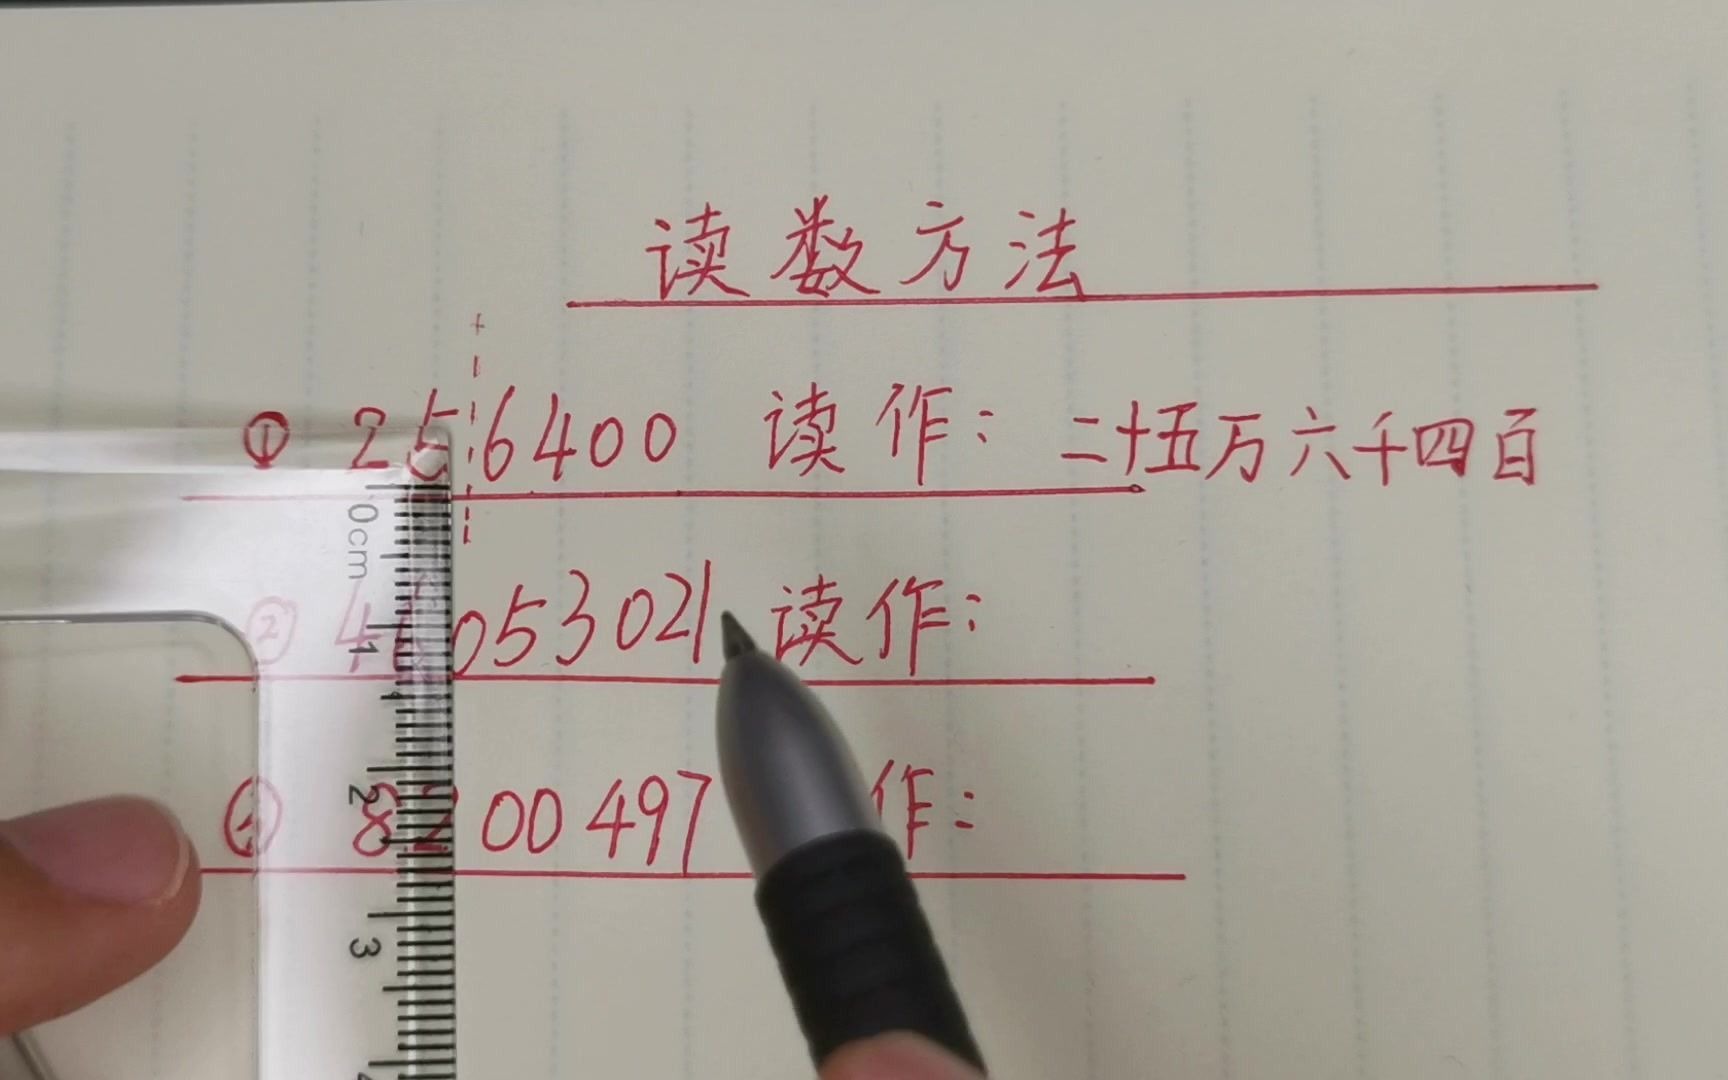 读数方法
① 256400 读作：二十五万六千四百
② 4 053021 读作：
8 00497 作：
0cm
1
2
3